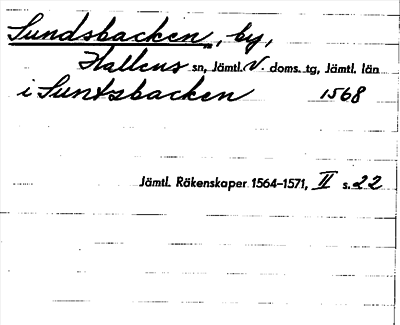 Sundsbacken, by,
Hallens sn, Jämtl. V. doms. tg, Jämtl. län
i Suntzbacken 1568
Jämtl. Räkenskaper 1564–1571, II s. 22